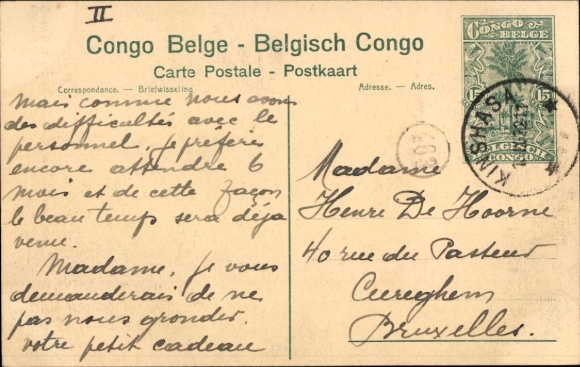 II
Congo Belge - Belgisch Congo
Carte Postale - Postkaart
Correspondance. — Briefwisseling
Adresse. — Adres.
CONGO BELGE
15 15
BELGISCH CONGO
KINSHASA
mais comme nous avons
des difficultés avec le
personnel, je préfère
encore attendre 6
mois et de cette façon
le beau temps sera déja
venu.
Madame, je vous
demanderais de ne
pas nous gronder.
votre petit cadeau
Madame
Henre De Hoorne
40 rue du Pasteur
Cureghem
Bruxelles.